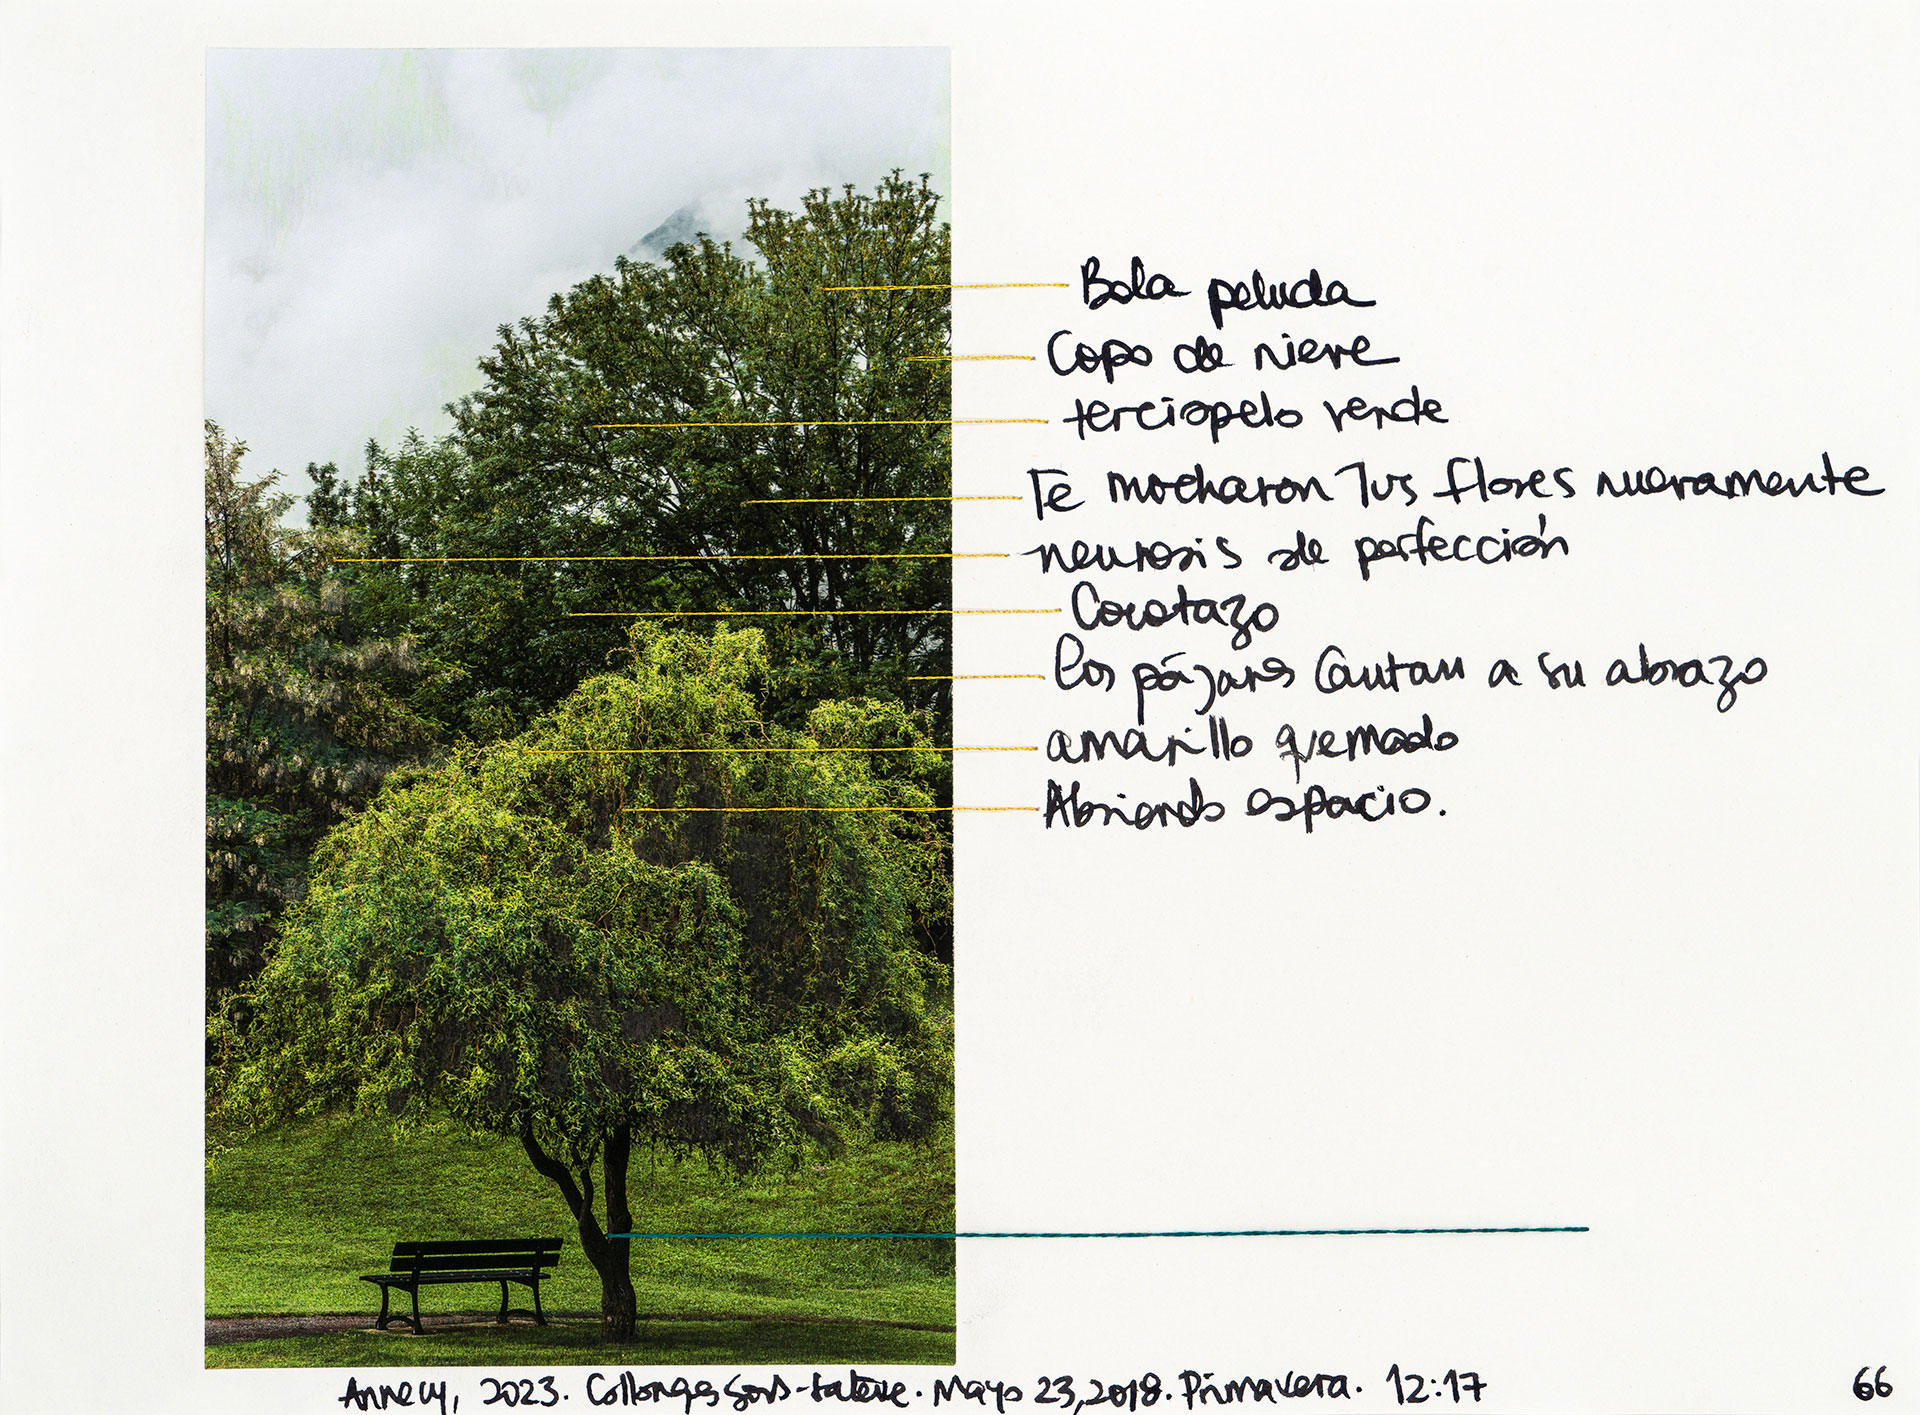 Bola peluda
Copo de nieve
terciopelo verde
Te mocharon Tus flores nuevamente
neurosis de perfección
Cocotazo
Los pájaros Cantan a su abrazo
amarillo quemado
Abriendo espacio.
Annecy, 2023. Collonges sous-Salève. Mayo 23, 2018. Primavera. 12:17
66